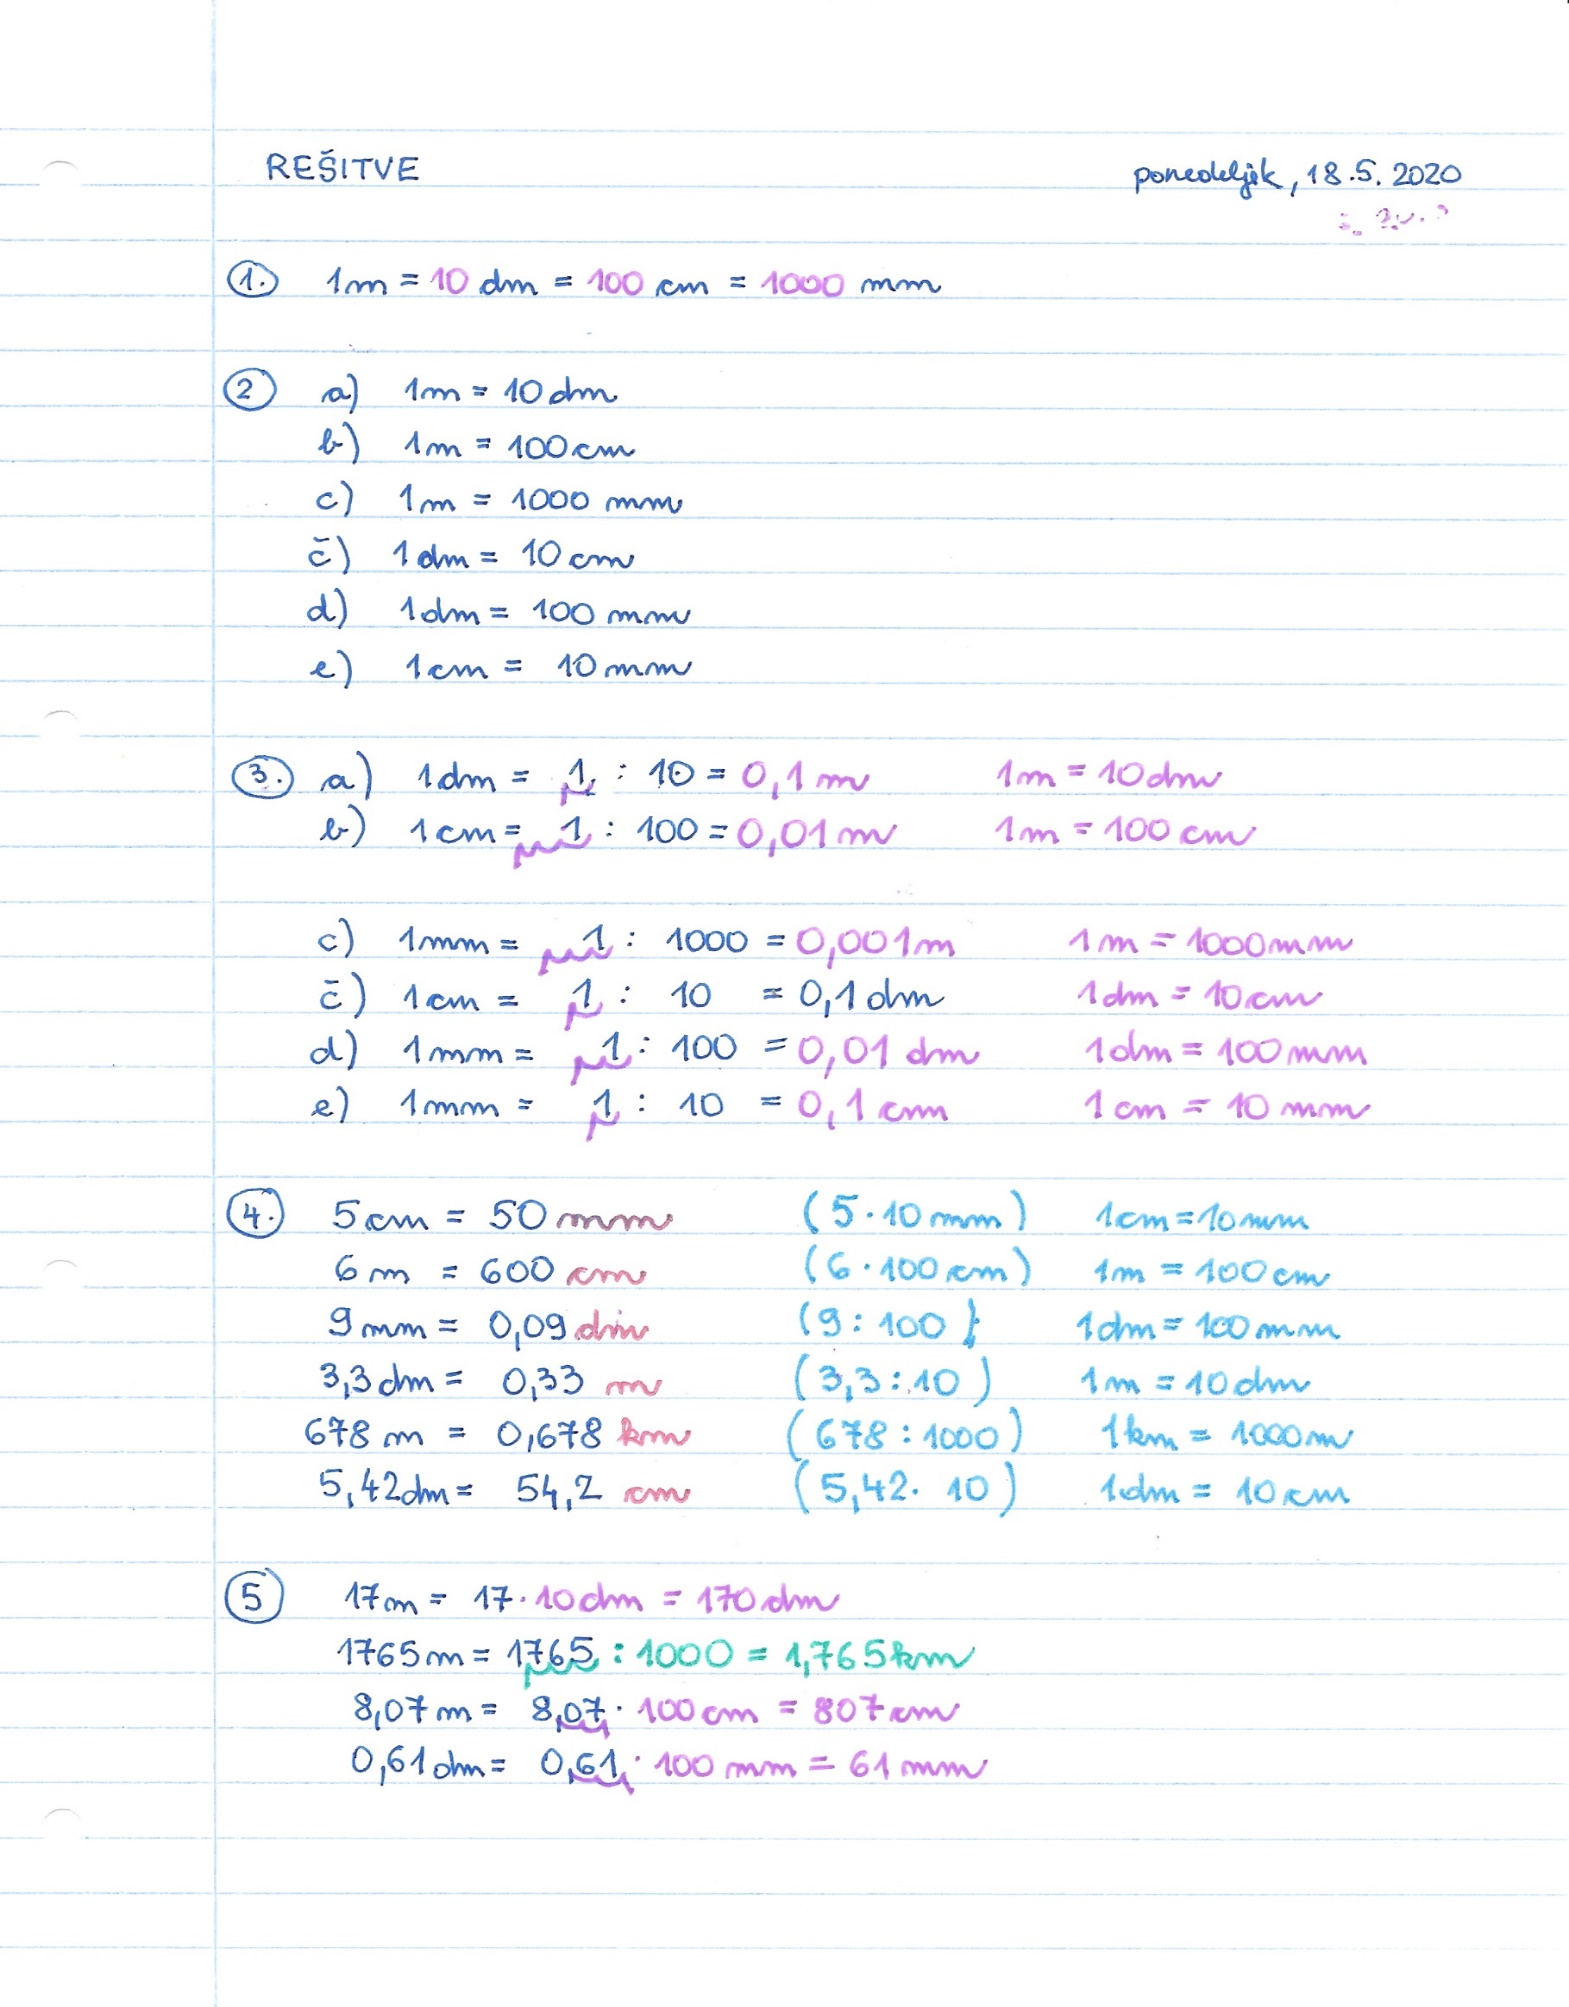 REŠITVE ponedeljek, 18.5.2020
1. 1m = 10 dm = 100 cm = 1000 mm
2 a) 1m = 10 dm
b) 1m = 100 cm
c) 1m = 1000 mm
č) 1dm = 10 cm
d) 1dm = 100 mm
e) 1cm = 10 mm
3. a) 1dm = 1 : 10 = 0,1 m 1m = 10 dm
b) 1cm = 1 : 100 = 0,01 m 1m = 100 cm
c) 1mm = 1 : 1000 = 0,001m 1m = 1000mm
č) 1cm = 1 : 10 = 0,1 dm 1dm = 10cm
d) 1mm = 1 : 100 = 0,01 dm 1dm = 100mm
e) 1mm = 1 : 10 = 0,1 cm 1cm = 10 mm
4. 5cm = 50 mm (5·10 mm) 1cm = 10mm
6m = 600 cm (6·100 cm) 1m = 100cm
9mm = 0,09 dm (9 : 100) 1dm = 100mm
3,3dm = 0,33 m (3,3 : 10) 1m = 10 dm
678 m = 0,678 km (678 : 1000) 1km = 1000m
5,42dm = 54,2 cm (5,42 · 10) 1dm = 10 cm
5 17m = 17·10dm = 170dm
1765m = 1765 : 1000 = 1,765km
8,07m = 8,07 · 100cm = 807cm
0,61dm = 0,61 · 100 mm = 61 mm